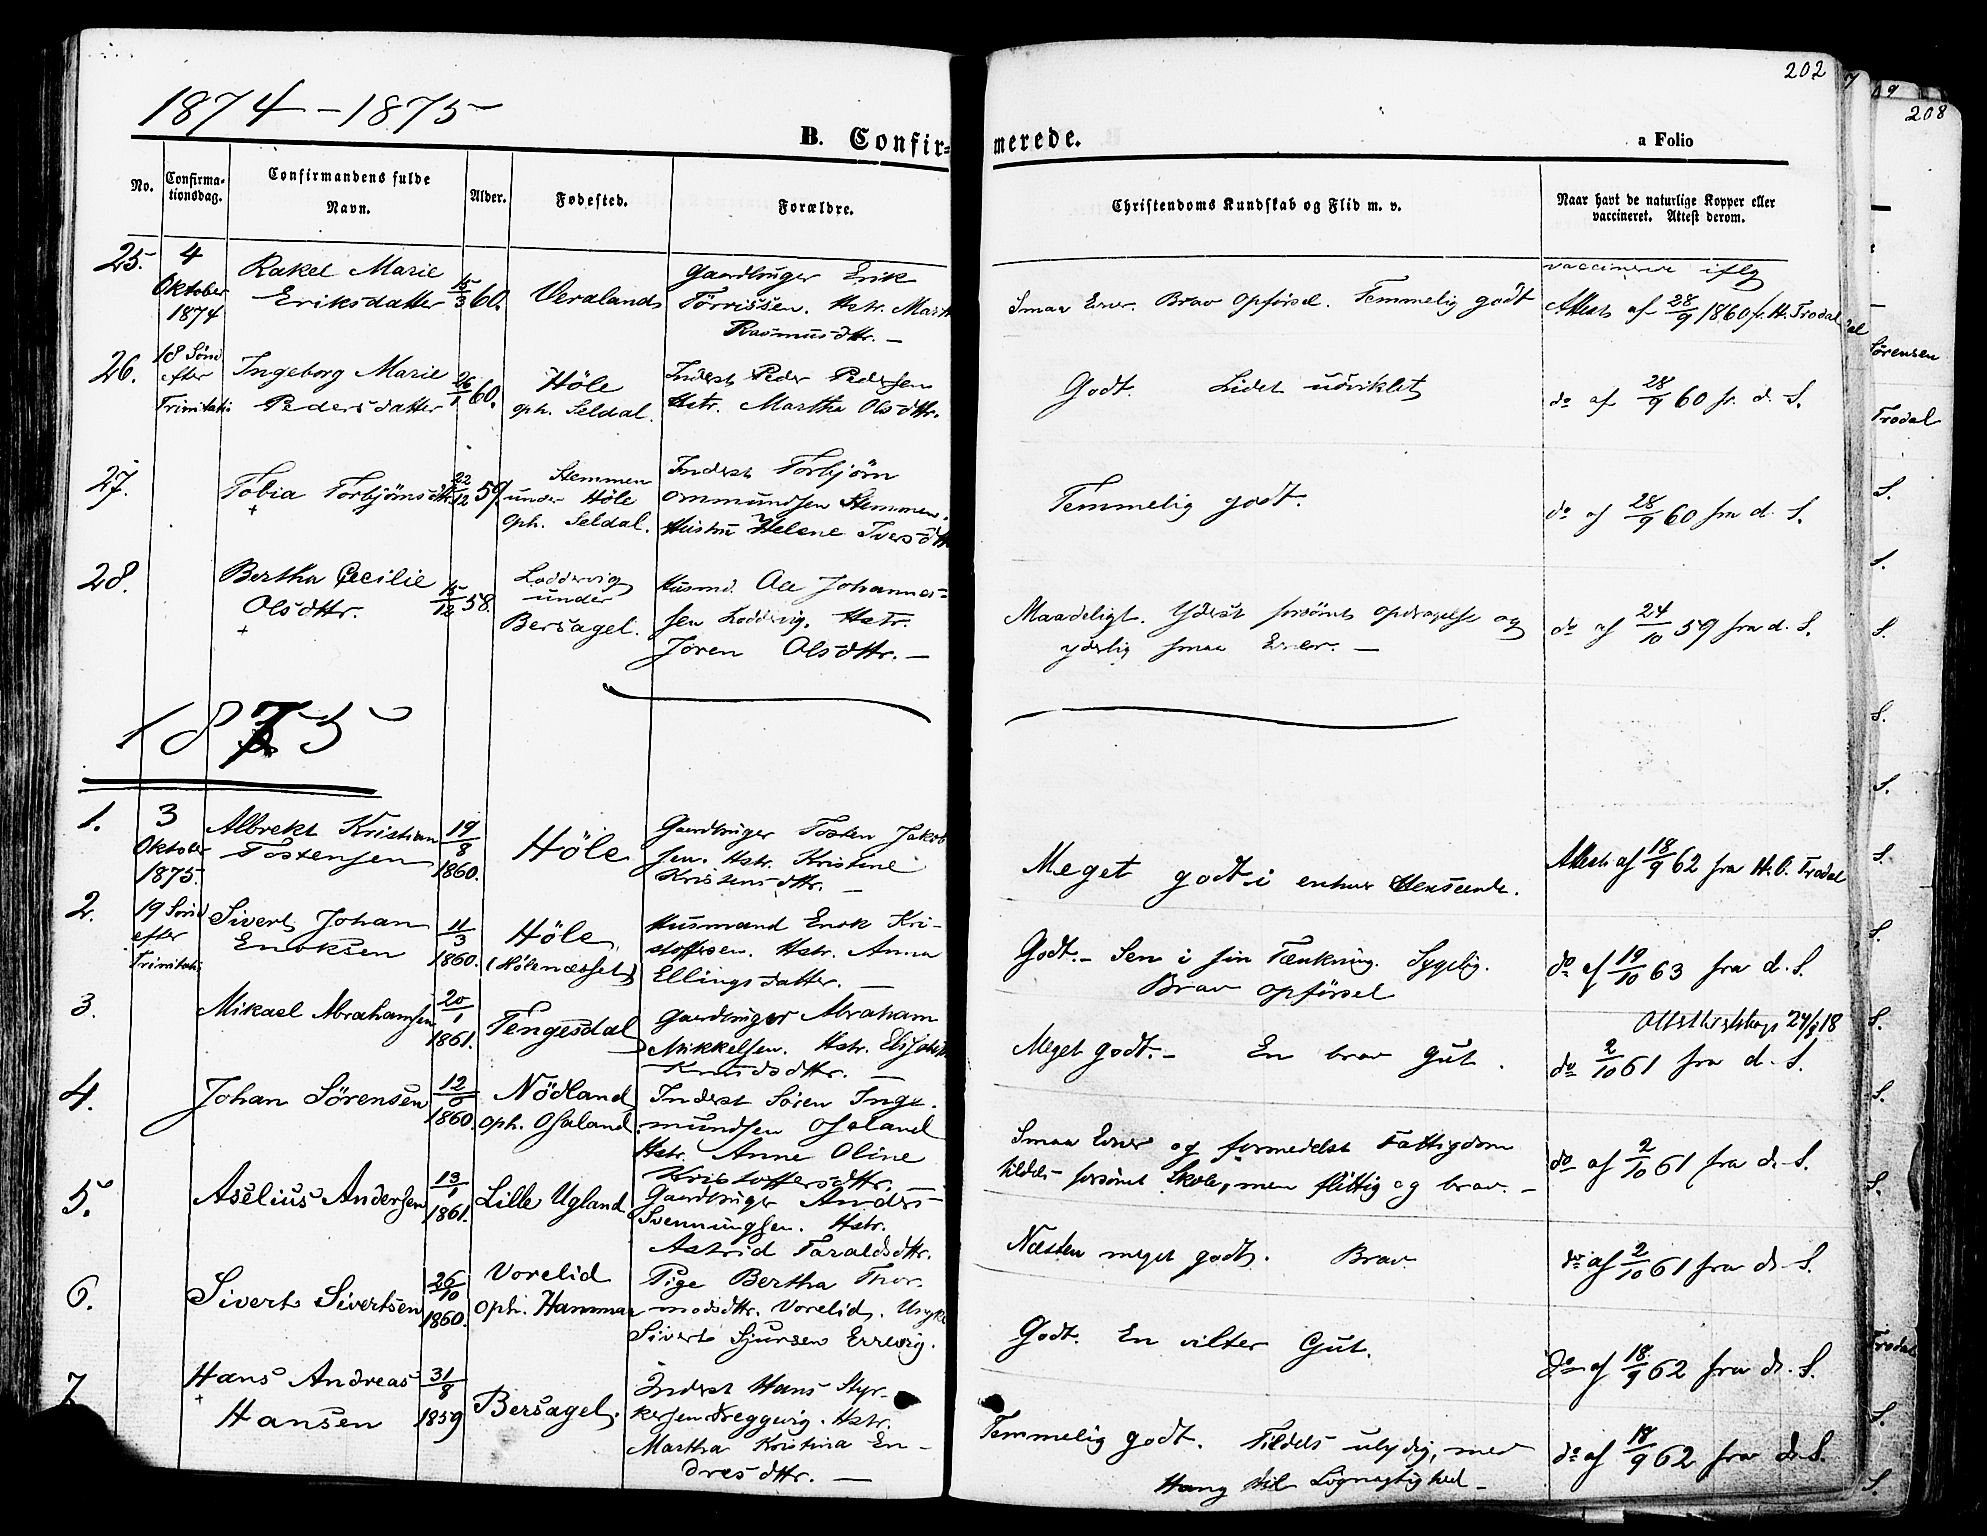 202
208
1874-1875
B. Confir-
merede.
a Folio
No.
Confirma-
tionsdag.
Confirmandens fulde
Navn.
Alder.
Fødested.
Forældre.
Christendoms Kundskab og Flid m. v.
Naar havt de naturlige Kopper eller
vaccineret. Attest derom.
25. 4 Oktober 1874
Rakel Marie
Eriksdatter
15/3 60.
Veraland
Gaardbruger Erik
Törrissen. Hstr. Marth
Rasmusdttr. —
Smaa Evner. Brav Opförsel. Temmelig godt
vaccineret iflg
Attest af 28/9 1860 fr. H. Trodal
26. 18 Sönd
efter
Trinitatis
Ingeborg Marie
Pedersdatter
26/1 60.
Höle
oph. Seldal.
Inderst Peder Pedersen
Hstr. Martha Olsdttr.
Godt. Lidet udviklet
do af 28/9 60 fr. d. S.
27.
Tobia Torbjörnsdttr.
+
22/12 59.
Stemmen
under Höle
oph. Seldal.
Inderst Torbjörn
Ommundsen Stemmen.
Hustru Helene Iversdtt
Temmelig godt.
do af 28/9 60 fra d. S.
28.
Bertha Cecilie
Olsdttr.
+
15/12 58.
Loddervig
under
Bersagel.
Husmd. Ole Johannes-
sen Loddervig. Hstr.
Jören Olsdttr. —
Maadeligt. Yderst forsömt Opdragelse og
yderlig smaa Evner. —
do af 24/10 59 fra d. S.
1875
1. 3 Oktober 1875.
Albrekt Kristian
Tostensen
19/8 1860.
Höle
Gaardbruger Tosten Jakob
sen. Hstr. Kristine
Kristensdttr. —
Meget godt i enhver Henseende.
Attest af 18/9 62 fra H. C. Trodal
2. 19 Sönd
efter
Trinitatis
Sivert Johan
Enoksen
11/3 1860.
Höle
(Hölenæsset)
Husmand Enok Kri-
stoffersen. Hstr. Anna
Ellingsdatter. —
Godt. - Sen i sin Tænkning. Sygelig.
Brav Opförsel
do af 19/10 63 fra d. S.
3.
Mikael Abrahamsen
20/1 1861.
Tengesdal
Gaardbruger Abraham
Mikkelsen. Hstr. Elisabet
Knudsdttr. —
Meget godt. - En brav Gut.
24/1 18
do 2/10 61 fra d. S.
4.
Johan Sörensen
1860
Nödland
oph. Osaland.
Inderst Sören Inge-
mundsen Osaland
Hstr. Anne Oline
Kristoffersdttr.
Smaa Evner og formedelst Fattigdom
tildels forsömt Skole, men flittig og brav. -
do af 2/10 61 fra d. S.
5.
Aselius Andersen
13/1 1861.
Lille Ugland
Gaardbruger Anders
Svenningsen. Hstr.
Astrid Taraldsdttr.
Næsten meget godt. Brav
do af 2/10 61 fra d. S.
6.
Sivert Sivertsen
26/10 1860.
Vorelid
oph. Hammar
Pige Bertha Thor-
modsdttr. Vorelid. Ungk.
Sivert Sjursen Errevig.
Godt. En vilter Gut.
do af 18/9 62 fra d. S.
7
Hans Andreas
+
Hansen
31/8 1859
Bersagel.
Inderst Hans Styr-
kersen Dreggevig. Hstr.
Martha Kristina En-
dresdttr. —
Temmelig godt. Tildels ulydig, med
Hang til Lögnagtighed -
do af 17/9 62 fra d. S.
Sörensen
Trodal
S.
S.
S.
S.
S.
S.
S.
S.
S.
S.
Trodal
S.
S.